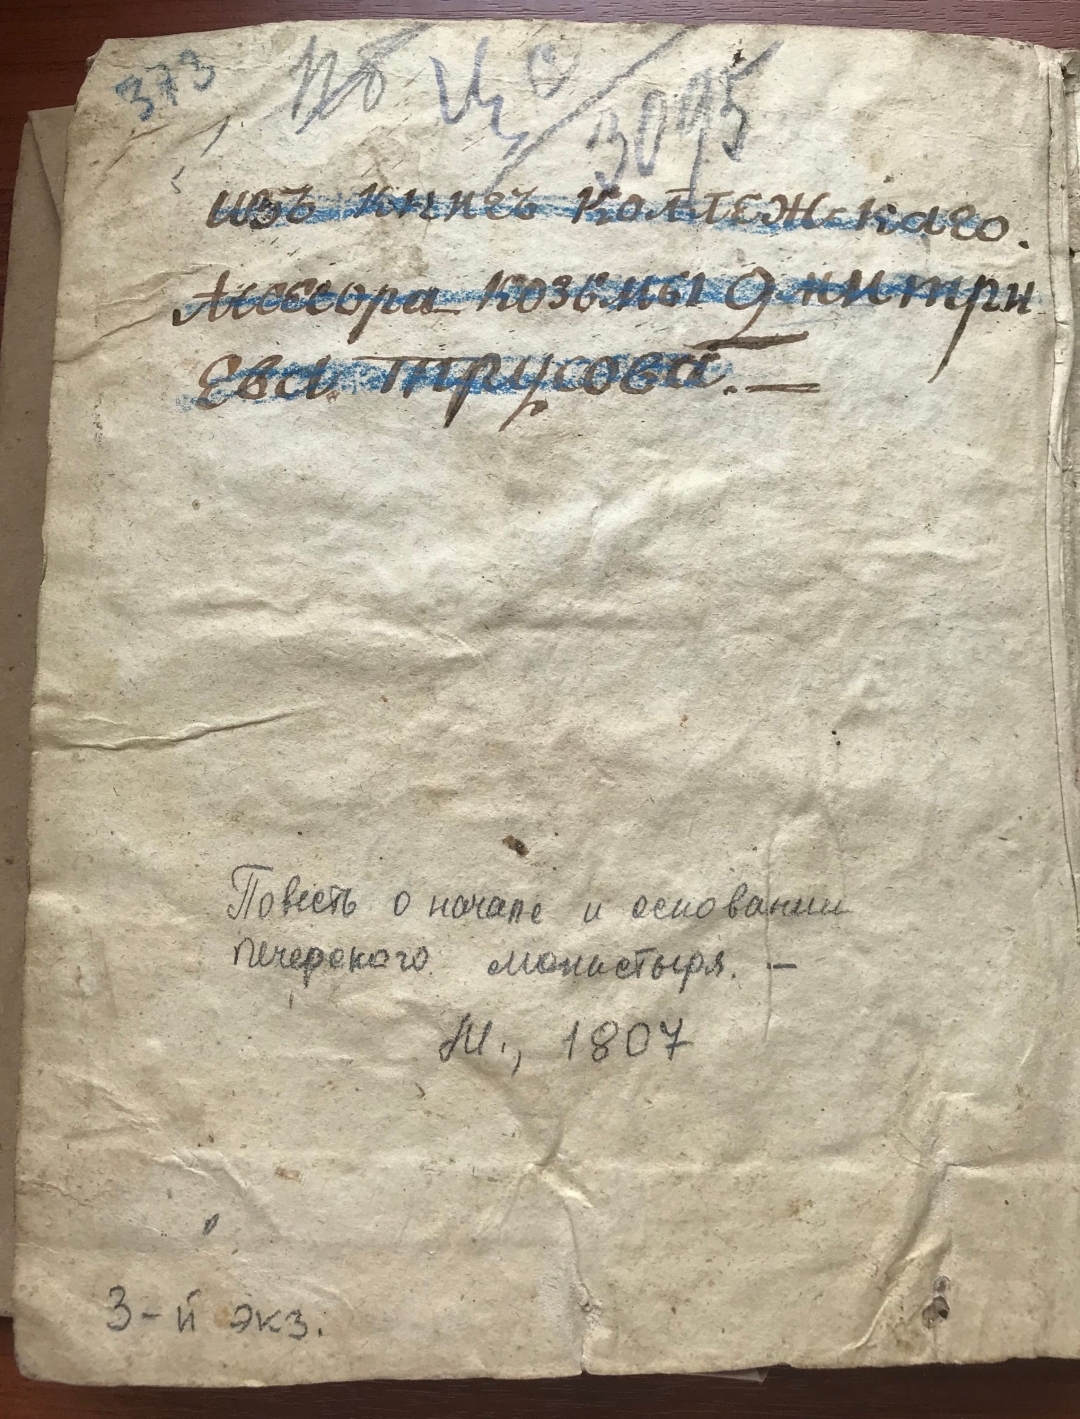 373
3095
изъ книгъ коллежскаго.
Ассесора козьмы Дмитри
Ева. Трусова. —
Повесть о начале и основании
печерского монастыря. —
М., 1807
3-й экз.